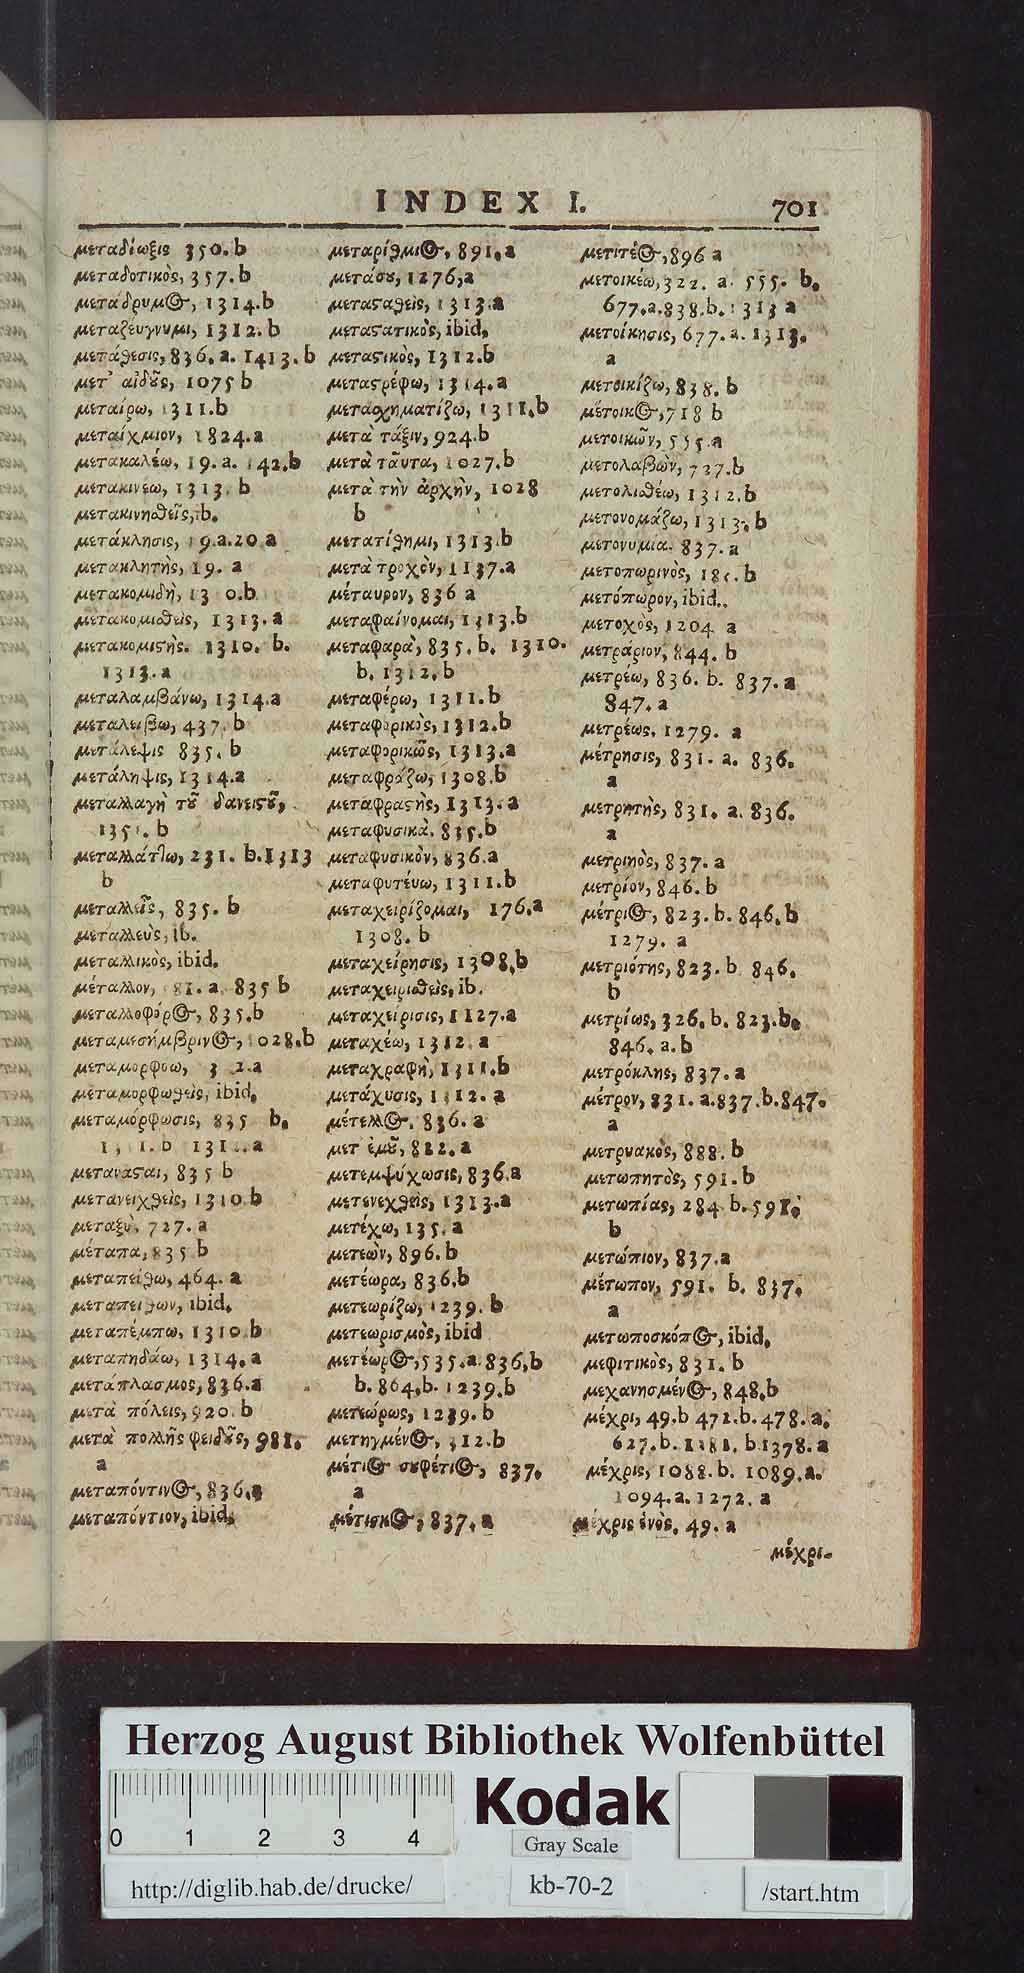 INDEX I. 701
μεταδίωξις 350.b
μεταδοτικὸς, 357.b
μεταδρυμ&, 1314.b
μεταζευγνυμι, 1312.b
μετάθεσις, 836.a. 1413.b
μετ' αἰδοῦς, 1075 b
μεταίρω, 1311.b
μεταίχμιον, 1824.a
μετακαλέω, 19.a. 142.b
μετακινέω, 1313.b
μετακινηθεῖς, ib.
μετάκλησις, 19.a.20 a
μετακλητὴς, 19. a
μετακομιδὴ, 13 0.b
μετακομισθεὶς, 1313.a
μετακομιστὴς. 1310. b.
1313.a
μεταλαμβάνω, 1314.a
μεταλειβω, 437.b
μετάλεψις 835.b
μετάληψις, 1314.a
μεταλλαγὴ τοῦ δανειστοῦ,
135 . b
μεταλλάττω, 231. b.1313
b
μεταλλεῖς, 835. b
μεταλλεὺς, ib.
μεταλλικὸς, ibid.
μέταλλον, 81.a. 835 b
μεταλλοφόρος, 835.b
μεταμεσημβρινος, 1028.b
μεταμορφοω, 3 2.a
μεταμορφωθεὶς, ibid.
μεταμόρφωσις, 835 b.
1 1.b 131 .a
μεταναςται, 835 b
μετανειχθεὶς, 1310.b
μεταξὺ. 727.a
μέταπα, 835 b
μεταπείθω, 464. a
μεταπειθων, ibid.
μεταπέμπω, 1310.b
μεταπηδάω, 1314.a
μετάπλασμος, 836.a
μετὰ πόλεις, 920.b
μετὰ πολλῆς φειδοῦς, 981.
a
μεταπόντινος, 836.a
μεταπόντιον, ibid.
μεταρίθμιος, 891.a
μετάσου, 1276,a
μετασταθεὶς, 1313.a
μεταστατικὸς, ibid.
μεταστικὸς, 1312.b
μεταστρέφω, 1314.a
μετασχηματίζω, 1311.b
μετὰ τάξιν, 924.b
μετὰ ταῦτα, 1027.b
μετὰ τὴν ἀρχὴν, 1028
b
μετατίθημι, 1313.b
μετὰ τροχὸν, 1137.a
μέταυρον, 836 a
μεταφαίνομαι, 1313.b
μεταφαρὰ, 835.b. 1310.
b. 1312.b
μεταφέρω, 1311.b
μεταφορικὸς, 1312.b
μεταφορικῶς, 1313.a
μεταφράζω, 1308.b
μεταφραστὴς, 1313.a
μεταφυσικὰ. 835.b
μεταφυσικὸν, 836.a
μεταφυτέυω, 1311.b
μεταχειρίζομαι, 176.a
1308. b
μεταχείρησις, 1308.b
μεταχειρισθεὶς, ib.
μεταχείρισις, 1127.a
μεταχέω, 1312.a
μεταχραφὴ, 1311.b
μετάχυσις, 1312.a
μέτελλος. 836.a
μετ ἐμοῦ, 822.a
μετεμψύχωσις, 836.a
μετενεχθεὶς, 1313.a
μετέχω, 135.a
μετεὼν, 896.b
μετέωρα, 836.b
μετεωρίζω, 1239.b
μετεωρισμὸς, ibid
μετέωρος, 535.a.836,b
b.864.b. 1239.b
μετεώρως, 1239.b
μετηγμένος, 312.b
μέτιος συφέτιος, 837.
a
μέτισκος, 837.a
μετιτέος, 896 a
μετοικέω, 322. a. 555. b.
677.a.838.b. 1313 a
μετοίκησις, 677.a. 1313.
a
μετοικίζω, 838.b
μέτοικος, 718 b
μετοικῶν, 555.a
μετολαβὼν, 727.b
μετολισθέω, 1312.b
μετονομάζω, 1313.b
μετονυμία. 837.a
μετοπωρινὸς, 18 .b
μετόπωρον, ibid.
μετοχὸς, 1204 a
μετράριον, 844.b
μετρέω, 836. b. 837.a
847.a
μετρέως. 1279. a
μέτρησις, 831. a. 836.
a
μετρητὴς, 831. a. 836.
a
μετριηὸς, 837.a
μετρίον, 846.b
μέτριος, 823.b.846.b
1279. a
μετριότης, 823.b 846.
b
μετρίως, 326.b. 823.b.
846.a.b
μετρόκλης, 837.a
μέτρον, 831.a.837.b.847.
a
μετρυακὸς, 888.b
μετωπητὸς, 591.b
μετωπίας, 284 b.591.
b
μετώπιον, 837.a
μέτωπον, 591. b. 837.
a
μετωποσκόπος, ibid.
μεφιτικὸς, 831.b
μεχανησμένος, 848.b
μέχρι, 49.b 472.b.478.a.
627.b. 1381. b.1378.a
μέχρις, 1088.b. 1089.a.
1094.a. 1272.a
μέχρις ἑνὸς. 49.a
μέχρι-
Herzog August Bibliothek Wolfenbüttel
0 1 2 3 4
Kodak
Gray Scale
http://diglib.hab.de/drucke/
kb-70-2
/start.htm